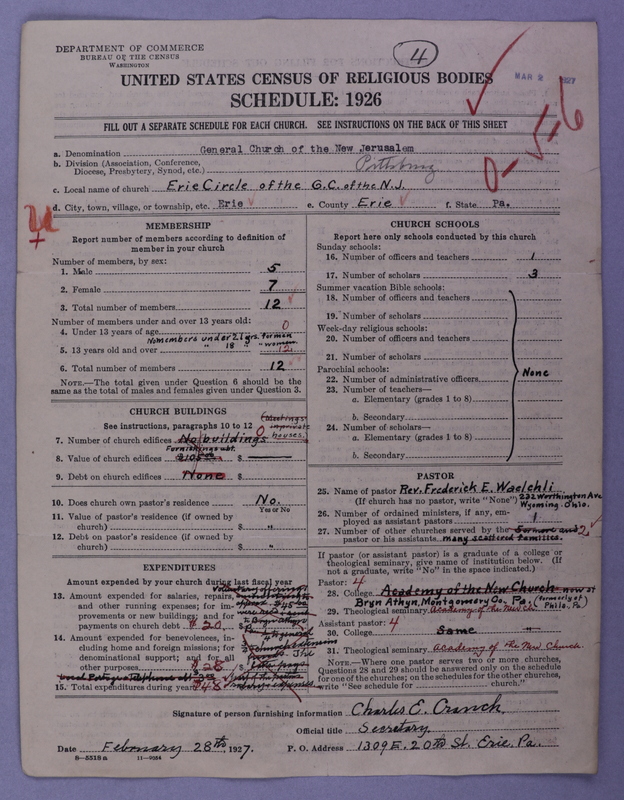 DEPARTMENT OF COMMERCE
BUREAU OF THE CENSUS
WASHINGTON
4
MAR 2 1927
UNITED STATES CENSUS OF RELIGIOUS BODIES
SCHEDULE: 1926
FILL OUT A SEPARATE SCHEDULE FOR EACH CHURCH. SEE INSTRUCTIONS ON THE BACK OF THIS SHEET
0-5-6
a. Denomination General Church of the New Jerusalem
b. Division (Association, Conference, Diocese, Presbytery, Synod, etc.) Pittsburg
c. Local name of church Erie Circle of the G.C. of the N.J.
d. City, town, village, or township, etc. Erie e. County Erie f. State Pa.
MEMBERSHIP
Report number of members according to definition of
member in your church
Number of members, by sex:
1. Male 5
2. Female 7
3. Total number of members 12
Number of members under and over 13 years old:
4. Under 13 years of age 0
No members under 21 yrs. for men
" 18 " women
5. 13 years old and over 12
6. Total number of members 12
NOTE.—The total given under Question 6 should be the
same as the total of males and females given under Question 3.
CHURCH BUILDINGS
See instructions, paragraphs 10 to 12
(Meetings in private houses.
7. Number of church edifices No buildings 0
Furnishings abt.
8. Value of church edifices $
9. Debt on church edifices None $
10. Does church own pastor's residence No.
Yes or No
11. Value of pastor's residence (if owned by
church) $ "
12. Debt on pastor's residence (if owned by
church) $ "
EXPENDITURES
Amount expended by your church during last fiscal year
13. Amount expended for salaries, repairs,
and other running expenses; for im-
provements or new building; and for
payments on church debt $ 20
14. Amount expended for benevolences, in-
cluding home and foreign missions; for
denominational support; and for all
other purposes $ 28
15. Total expenditures during year $48
CHURCH SCHOOLS
Report here only schools conducted by this church
Sunday schools:
16. Number of officers and teachers 1
17. Number of scholars 3
Summer vacation Bible schools:
18. Number of officers and teachers
19. Number of scholars
Week-day religious schools:
20. Number of officers and teachers
21. Number of scholars
Parochial schools:
22. Number of administrative officers
None
23. Number of teachers—
a. Elementary (grades 1 to 8)
b. Secondary
24. Number of scholars—
a. Elementary (grades 1 to 8)
b. Secondary
PASTOR
25. Name of pastor Rev. Frederick E. Waelchli
(If church has no pastor, write "None") 232 Worthington Ave
Wyoming Ohio.
26. Number of ordained ministers, if any, em-
ployed as assistant pastors 1
27. Number of other churches served by the Some and 2
pastor or his assistants many scattered families.
If pastor (or assistant pastor) is a graduate of a college or
theological seminary, give name of institution below. (If
not a graduate, write "No" in the space indicated.)
Pastor: 4
28. College Academy of the New Church now at
Bryn Athyn, Montgomery Co, Pa. (formerly at Phila. Pa)
29. Theological seminary Academy of the New Ch
Assistant pastor: 4
30. College Same "
31. Theological seminary Academy of the New Church.
NOTE.—Where one pastor serves two or more churches,
Questions 28 and 29 should be answered only on the schedule
for one of the churches; on the schedules for the other churches,
write "See schedule for church."
Signature of person furnishing information Charles E. Cranch.
Official title Secretary
Date February 28th, 1927. P. O. Address 1309 E. 20th St. Erie, Pa.
8—5318a 11—9064